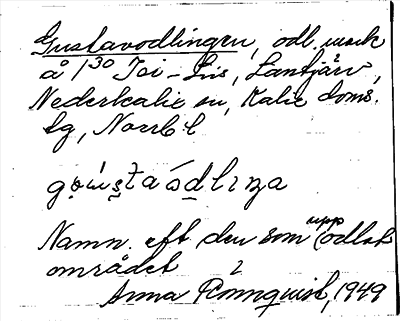 Gustavodlingen, odl. mark
å 1³⁰ Joi-Siis, Lantjärv,
Nederkalix sn, Kalix doms.
lg, Norrb. l.
go̤ẃs̤ta ód̤lıŋa
Namn. eft. den som upp(odlat
området
Anna Rönnquist, 1949